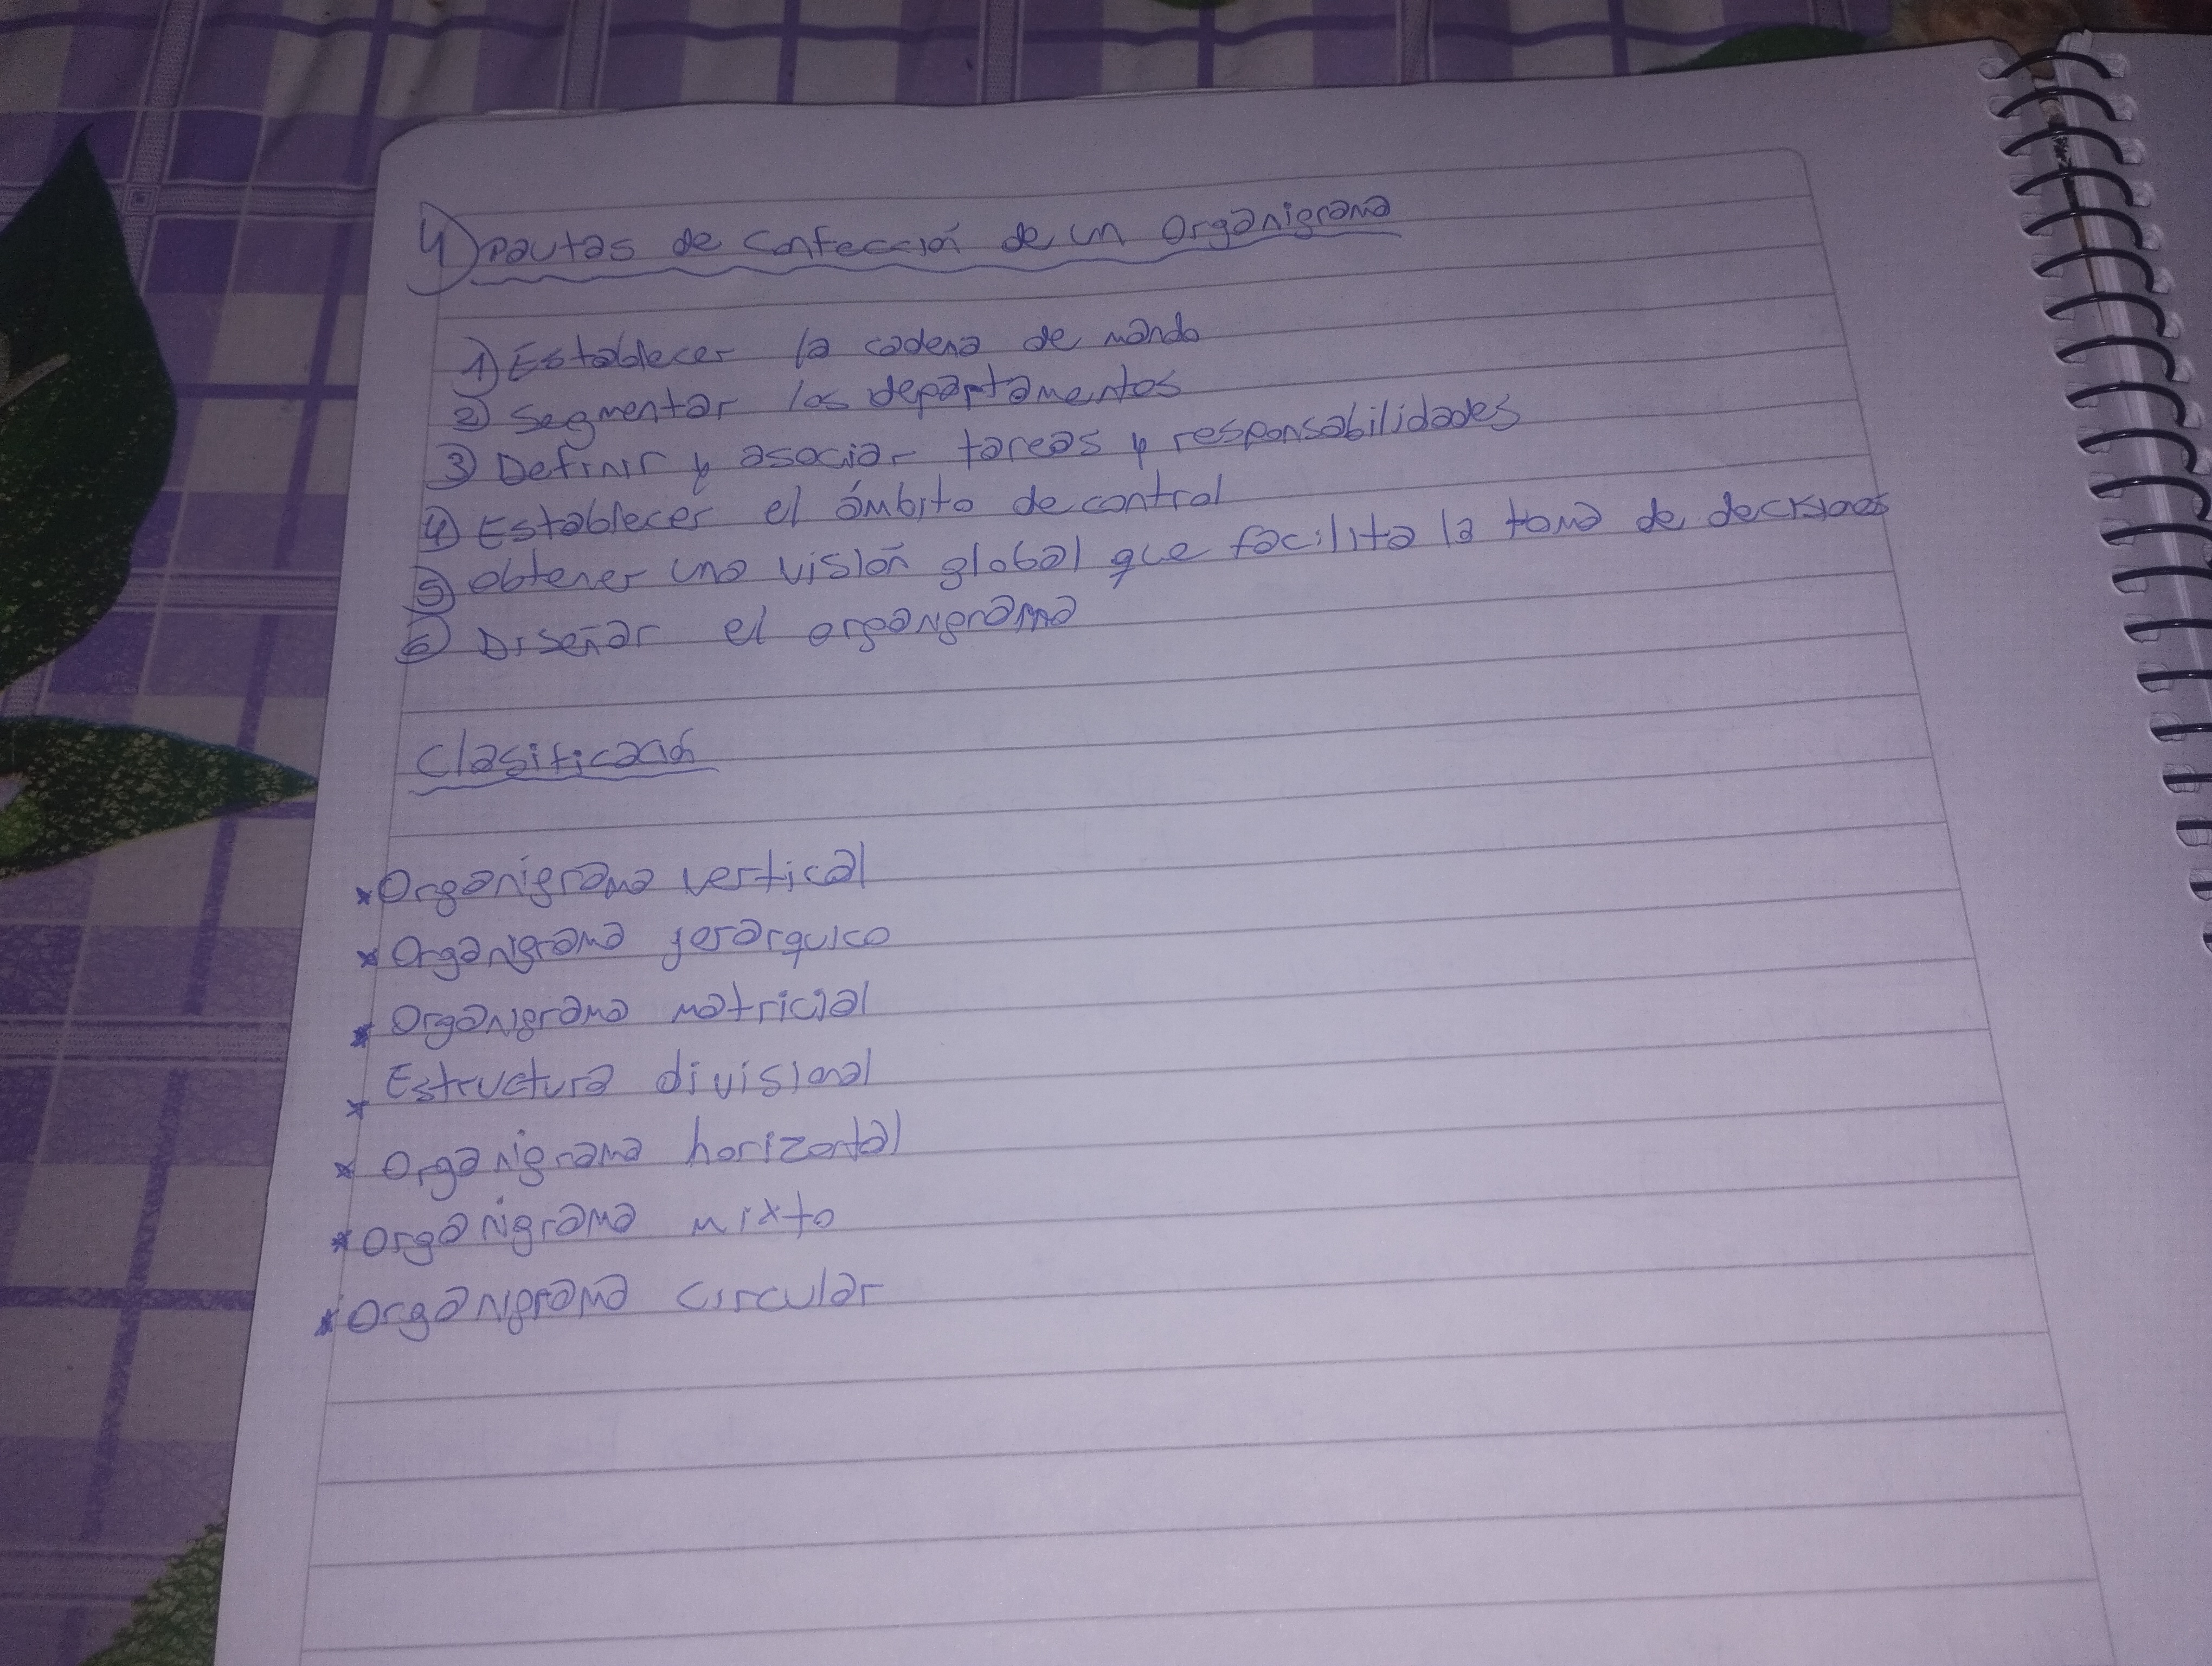 4) Pautas de confección de un Organigrama
1) Establecer la cadena de mando
2) Segmentar los departamentos
3) Definir y asociar tareas y responsabilidades
4) Establecer el ámbito de control
5) obtener una visión global que facilita la toma de decisiones
6) Diseñar el organigrama
Clasificación
* Organigrama vertical
* Organigrama jerarquico
* Organigrama matricial
* Estructura divisional
* Organigrama horizontal
* Organigrama mixto
* Organigrama circular